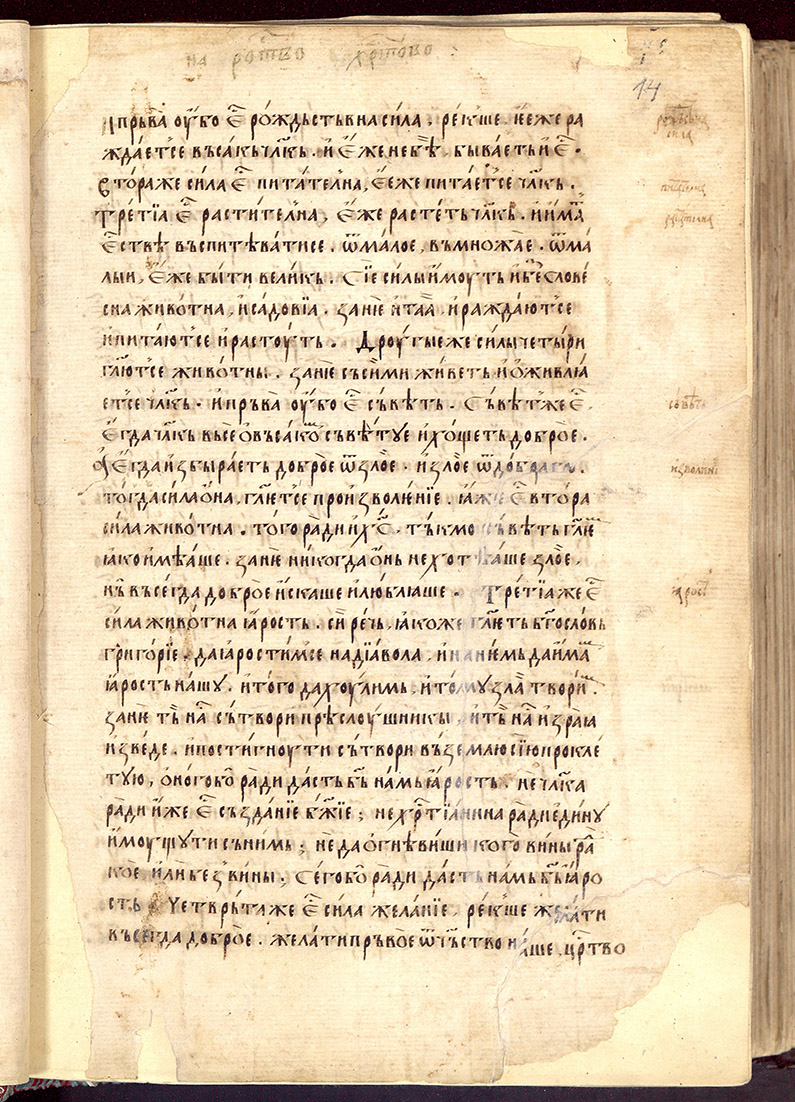 на рож͠тво хр͠тово :
14
И прьваа оубо е҆с̑ рожьдьствна сила . рекше . еже ра
ждает̾се въсакь чл҃кь . и еже небѣ , бываеть и е҆с̑ .
втораже сила е҆с̑ питател̾на , еже питает̾се чл҃кь .
третїа е҆с̑ растител̾на , еже растеть чл҃кь . и има
ествѣ въспитѣватисе . ѿ малое , въ множае . ѿ ма
лыи , еже быти великь . Сїе силы имоуть и бесловe
сна животна , и садовїа . зание и таа . и раждают̾се
и питают̾се и растоуть . Дроугыеже силы четыри
гл҃ют̾се животны . зание съ сѣми живеть и оживлꙗ
ет̾се чл҃кь . и прьва оубо е҆с̑ съвѣть . Съвѣт̾же е҆с̑ .
егда чл҃кь въсе о въсакѡ съвѣтуе и хощеть доброе .
егда избыраеть доброе ѿ злое . и злое ѿ добраго .
тогда сила она , гл҃ет̾се произволенїе . ꙗже е҆с̑ втора
сила животна . того ради и х҃с . тькмо съвѣть гл҃ет
ꙗко имѣаше . зание никогда онь не хотѣаше злое ,
нь въсегда доброе искаше и люблꙗше . Третїа же е҆с̑
сила животна ꙗрость . сирѣчь , ꙗкоже гл҃еть бг҃ословь
григорїе . да ꙗростим̾се на дїавола , и на нѥмь да имам
ꙗрость нашу . и того да хоулимь , и томузла творим .
зание тъ на с̑ сътвори прѣслоушникы , и тъ на с̑ из раꙗ
изведе . и постигноути сътвори въ землю сїю прокле
тую , оногово ради дасть бь намь ꙗрость . не чл҃ка
ради иже е҆с̑ създанїе бж҃їе ; не хр҃тїанина ради едину
имоущути съ нимь ; не да огнѣвиши кого вины ра
кое или без вины ; Сегово ради дасть намь бь ꙗро
сть . Четврьтаже е҆с̑ сила желанїе . рекше желати
въсегда доброе . желати прьвое ѿчьство наше цр҃тво